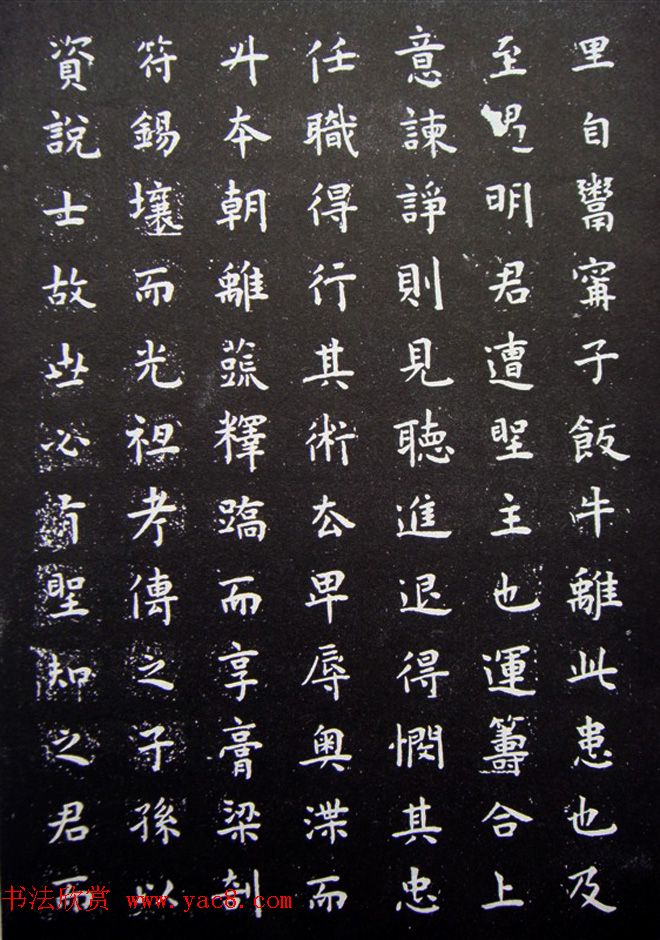 里自鬻甯子飯牛離此患也及
至明君遭聖主也運籌合上
意諫諍則見聽進退得憫其忠
任職得行其術去卑辱奧渫而
升本朝離蔬釋蹻而享膏梁剖
符錫壤而光祖考傳之子孫以
資說士故世必有聖知之君而
书法欣赏 www.yac8.com